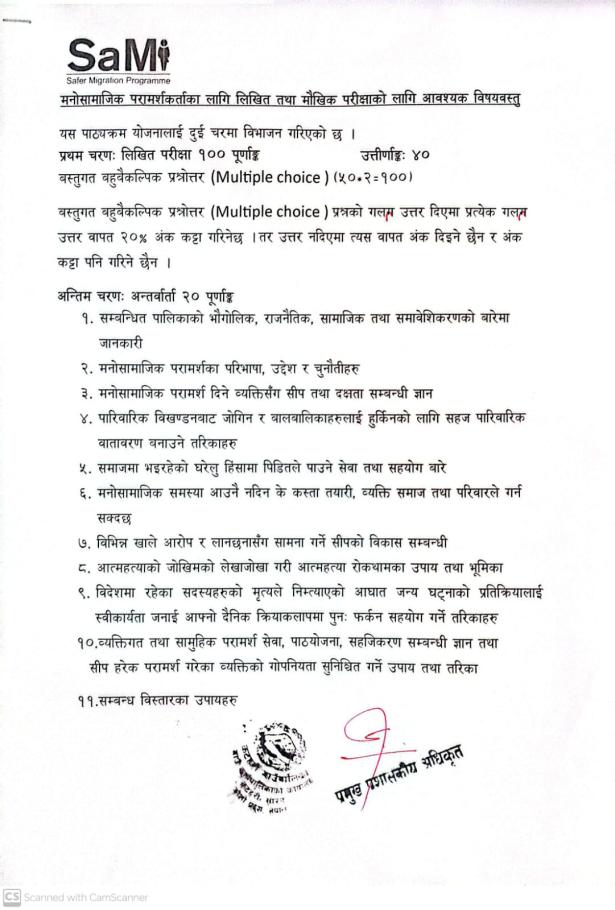 SaMi
Safer Migration Programme
मनोसामाजिक परामर्शकर्ताका लागि लिखित तथा मौखिक परीक्षाको लागि आवश्यक विषयवस्तु
यस पाठ्यक्रम योजनालाई दुई चरमा विभाजन गरिएको छ ।
प्रथम चरणः लिखित परीक्षा १०० पूर्णाङ्क उत्तीर्णाङ्कः ४०
बस्तुगत बहुबैकल्पिक प्रश्नोत्तर (Multiple choice ) (५०*२=१००)
बस्तुगत बहुबैकल्पिक प्रश्नोत्तर (Multiple choice ) प्रश्नको गलत उत्तर दिएमा प्रत्येक गलत
उत्तर वापत २०% अंक कट्टा गरिनेछ । तर उत्तर नदिएमा त्यस वापत अंक दिइने छैन र अंक
कट्टा पनि गरिने छैन ।
अन्तिम चरणः अन्तर्वार्ता २० पूर्णाङ्क
१. सम्बन्धित पालिकाको भौगोलिक, राजनैतिक, सामाजिक तथा समावेशिकरणको बारेमा
जानकारी
२. मनोसामाजिक परामर्शका परिभाषा, उद्देश र चुनौतीहरु
३. मनोसामाजिक परामर्श दिने व्यक्तिसँग सीप तथा दक्षता सम्बन्धी ज्ञान
४. पारिवारिक विखण्डनवाट जोगिन र वालवालिकाहरुलाई हुर्किनको लागि सहज पारिवारिक
वातावरण वनाउने तरिकाहरु
५. समाजमा भइरहेको घरेलु हिंसामा पिडितले पाउने सेवा तथा सहयोग बारे
६. मनोसामाजिक समस्या आउनै नदिन के कस्ता तयारी, व्यक्ति समाज तथा परिवारले गर्न
सक्दछ
७. विभिन्न खाले आरोप र लानछनासँग सामना गर्ने सीपको विकास सम्बन्धी
८. आत्महत्याको जोखिमको लेखाजोखा गरी आत्महत्या रोकथामका उपाय तथा भूमिका
९. विदेशमा रहेका सदस्यहरुको मृत्यले निम्त्याएको आघात जन्य घट्नाको प्रतिक्रियालाई
स्वीकार्यता जनाई आफ्नो दैनिक क्रियाकलापमा पुनः फर्कन सहयोग गर्ने तरिकाहरु
१०.व्यक्तिगत तथा सामुहिक परामर्श सेवा, पाठयोजना, सहजिकरण सम्बन्धी ज्ञान तथा
सीप हरेक परामर्श गरेका व्यक्तिको गोपनियता सुनिश्चित गर्ने उपाय तथा तरिका
११.सम्बन्ध विस्तारका उपायहरु
प्रमुख प्रशासकीय अधिकृत
CS Scanned with CamScanner